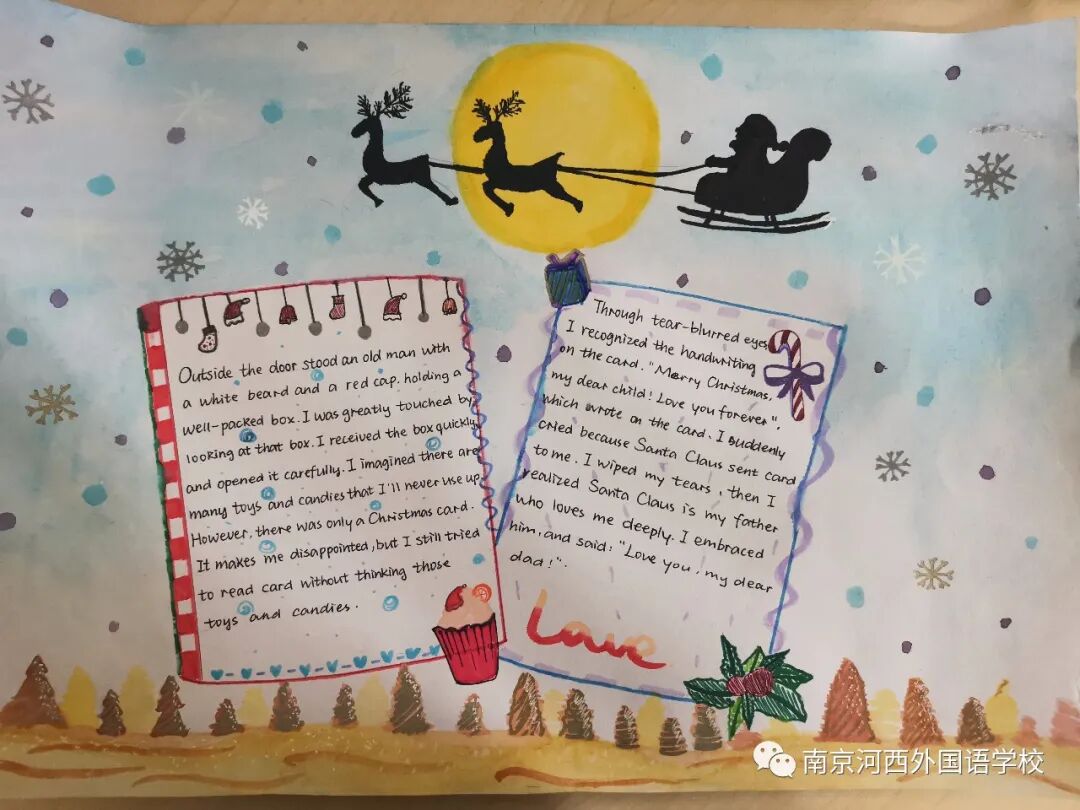 Outside the door stood an old man with
a white beard and a red cap, holding a
well-packed box. I was greatly touched by
looking at that box. I received the box quickly
and opened it carefully. I imagined there are
many toys and candies that I'll never use up.
However, there was only a Christmas card.
It makes me disappointed, but I still tried
to read card without thinking those
toys and candies.
Through tear-blurred eyes,
I recognized the handwriting
on the card. "Merry Christmas,
my dear child! Love you forever".
which wrote on the card. I suddenly
cried because Santa Claus sent card
to me. I wiped my tears, then I
realized Santa Claus is my father
who loves me deeply. I embraced
him, and said: "Love you, my dear
dad!".
Love
南京河西外国语学校